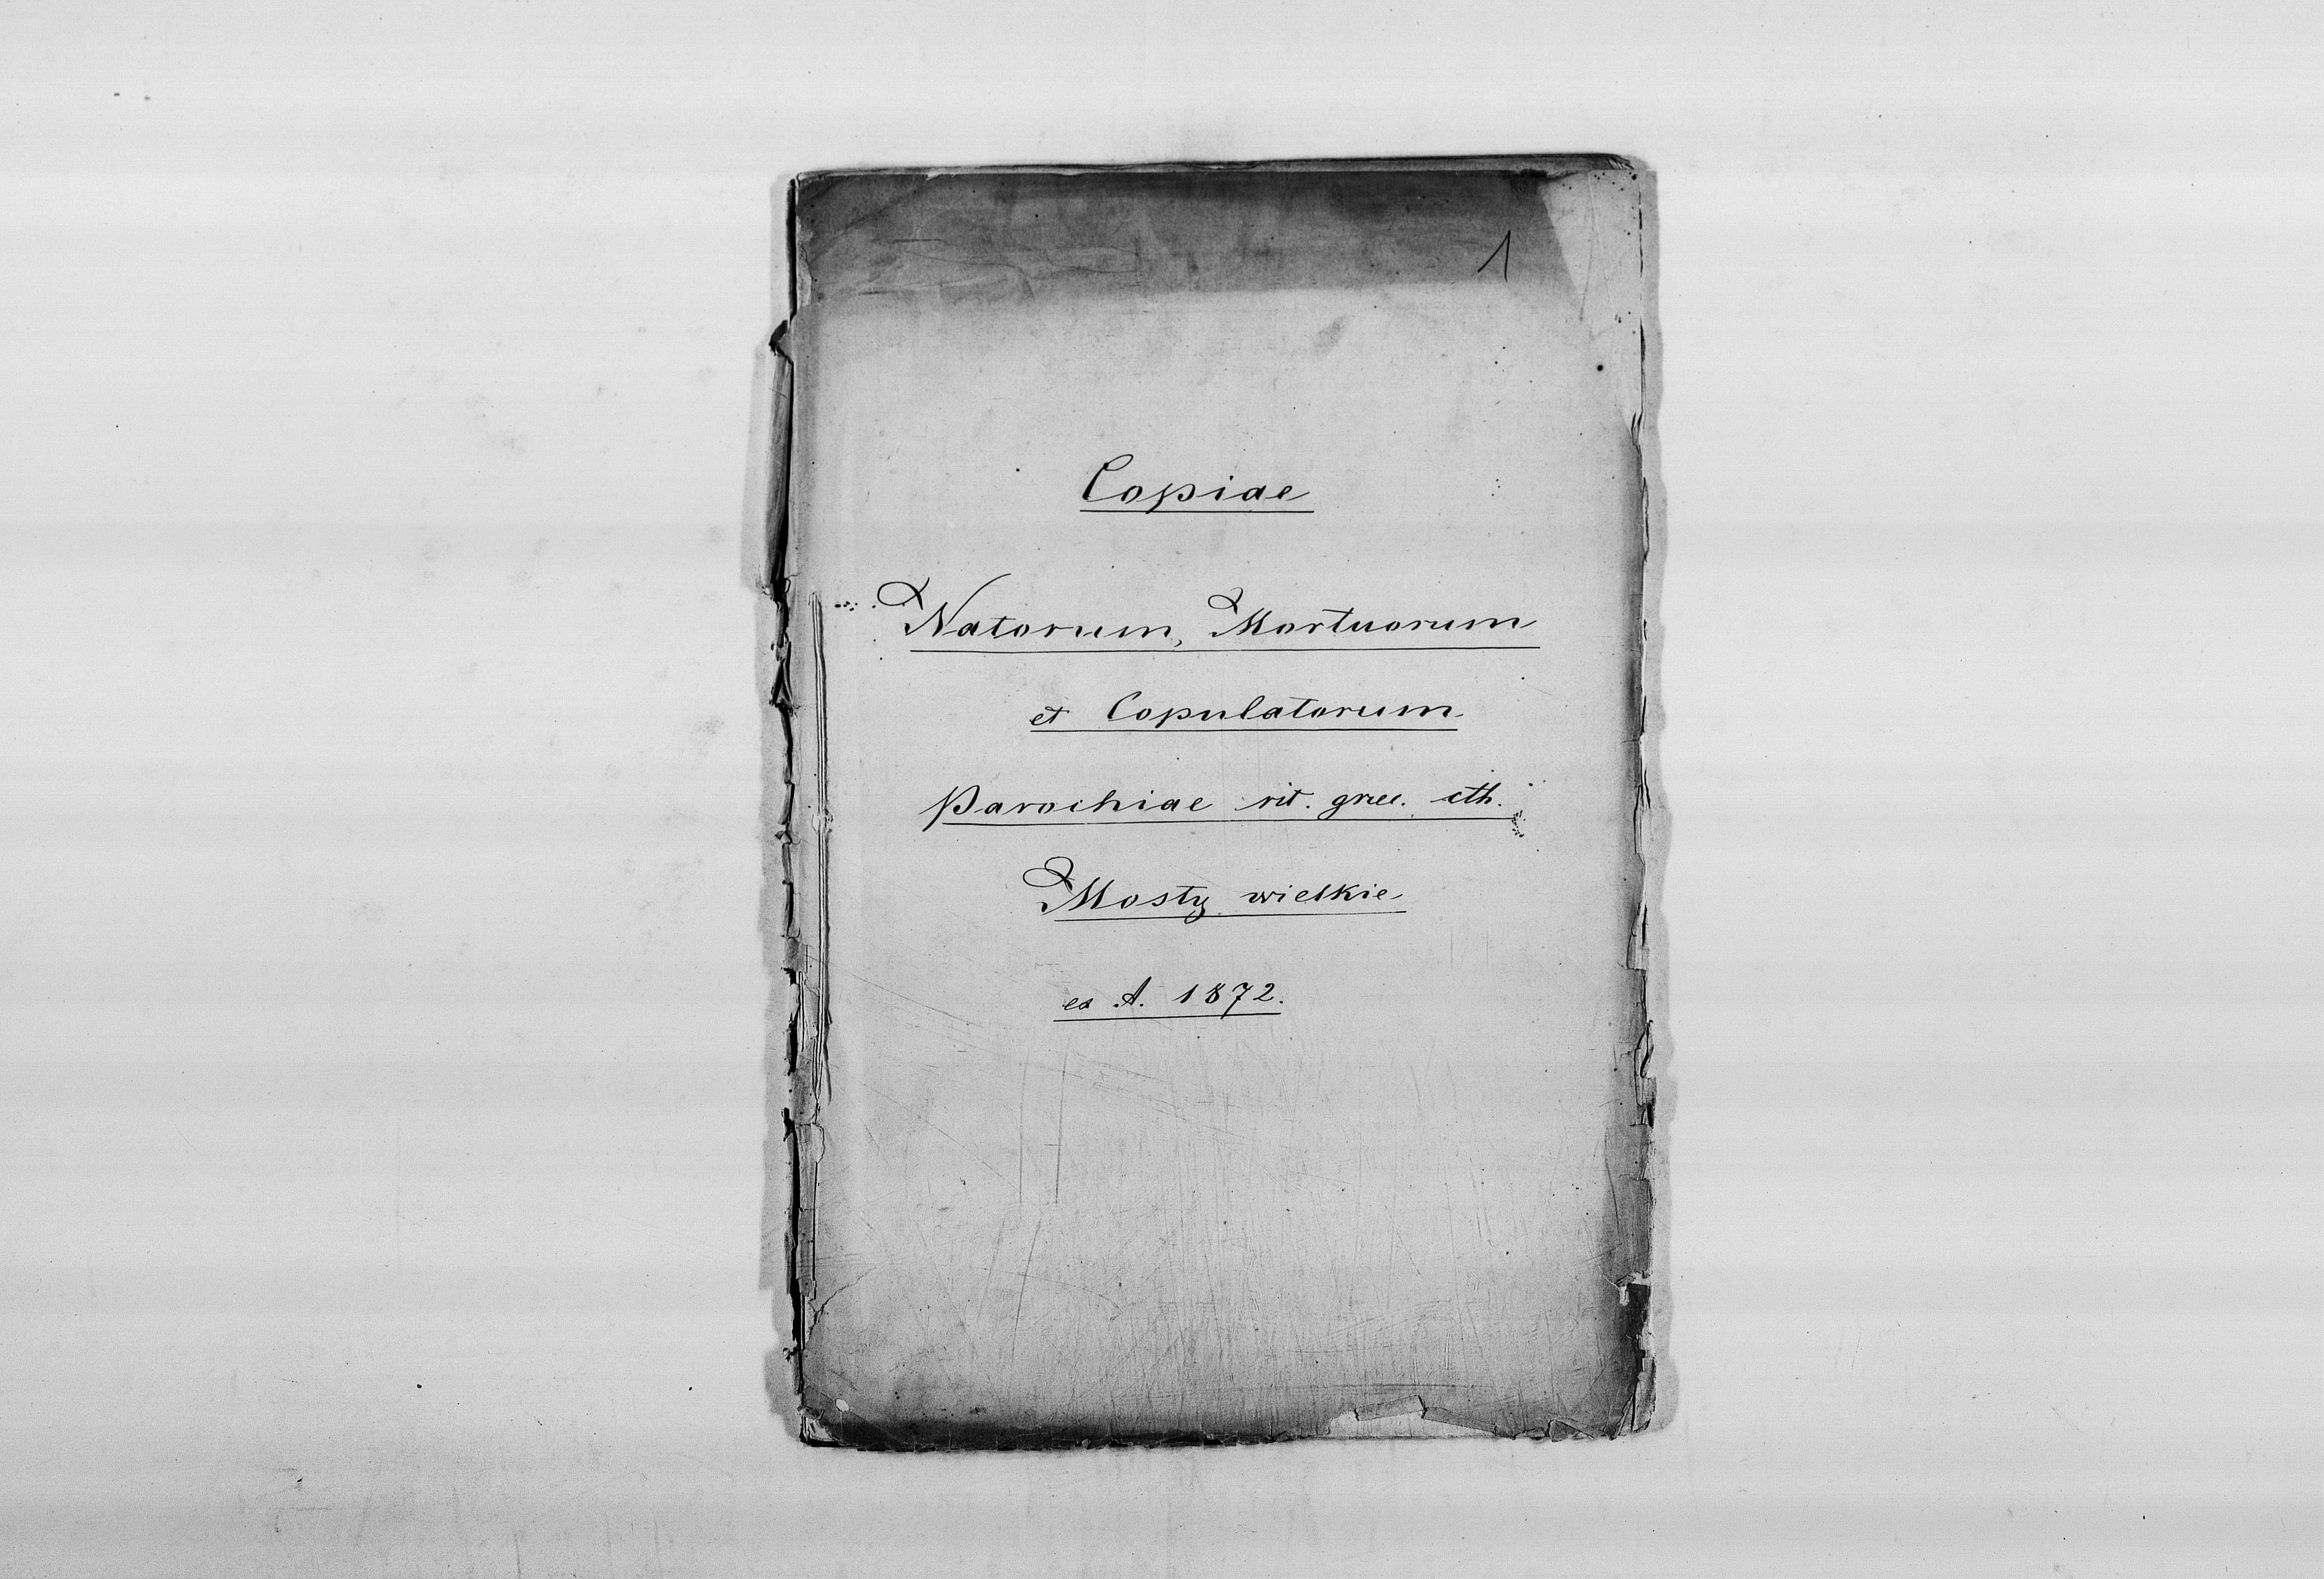 1
Copiae
Natorum, Mortuorum
et Copulatorum
Parochiae rit. graec. cth.
Mosty wielkie
ex A. 1872.